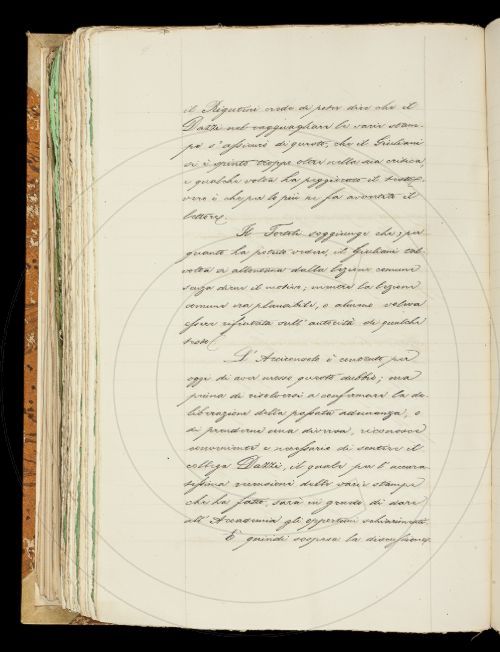 il Rigutini crede di poter dire che il
Dazzi nel ragguagliare le varie stam-
pe s'assicurò di questo, che il Giuliani
si è spinto troppo oltre nella sua critica
e qualche volta ha peggiorato il testo;
vero è che per lo più ne fa avvertito il
lettore.
Il Tortoli soggiunge che, per
quanto ha potuto vedere, il Giuliani tal-
volta si allontana dalla lezione comune
senza dirne il motivo; mentre la lezione
comune era plausibile, o almeno voleva
esser rifiutata sull'autorità di qualche
testo.
L'Arciconsolo è contento per
oggi di aver messo questo dubbio; ma
prima di risolversi a confermare la de-
liberazione della passata adunanza, o
di prenderne una diversa, riconosce
conveniente e necessario di sentire il
collega Dazzi, il quale per l'accura-
tissima revisione delle varie stampe
che ha fatto, sarà in grado di dare
all'Accademia gli opportuni schiarimenti.
È quindi sospesa la discussione.